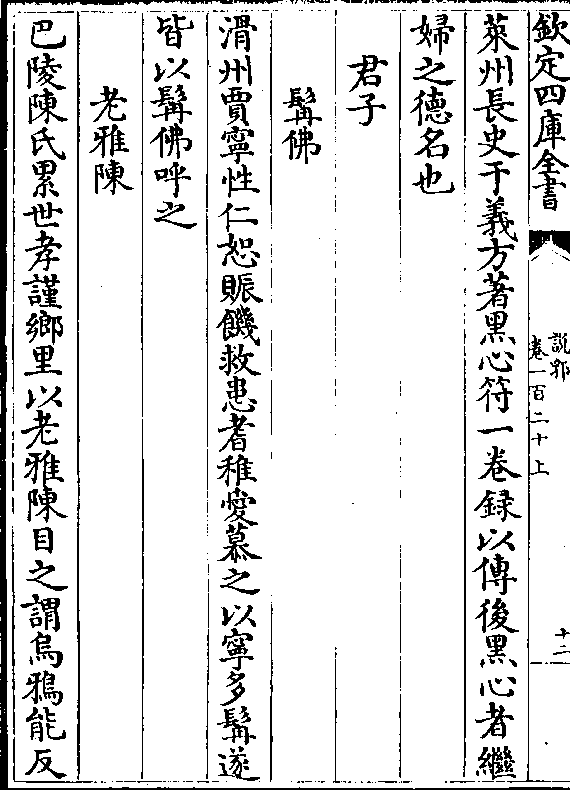 欽定四庫全書
說郛
卷一百二十上
十二
萊州長史于義方著黑心符一卷録以傳後黑心者繼
婦之德名也
君子
髯佛
滑州賈寧性仁恕賑饑救患耆稚愛慕之以寧多髯遂
皆以髯佛呼之
老雅陳
巴陵陳氏累世孝謹鄉里以老雅陳目之謂烏鴉能反